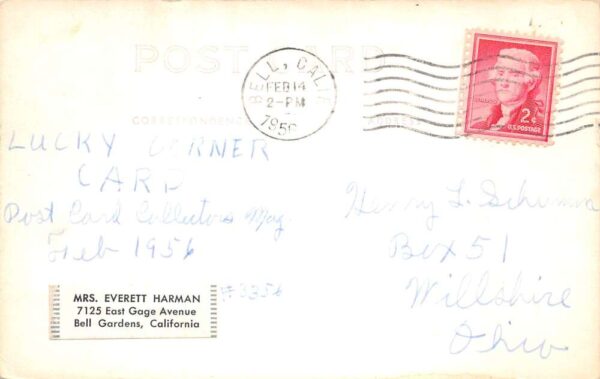 POST CARD
BELL, CALIF
FEB 14
2-PM
1956
2¢
U.S. POSTAGE
CORRESPONDENCE
LUCKY CORNER
CARD
Post Card Collectors Mag.
Feb 1956
#3356
MRS. EVERETT HARMAN
7125 East Gage Avenue
Bell Gardens, California
Henry L.
Box 51
Willshire
Ohio